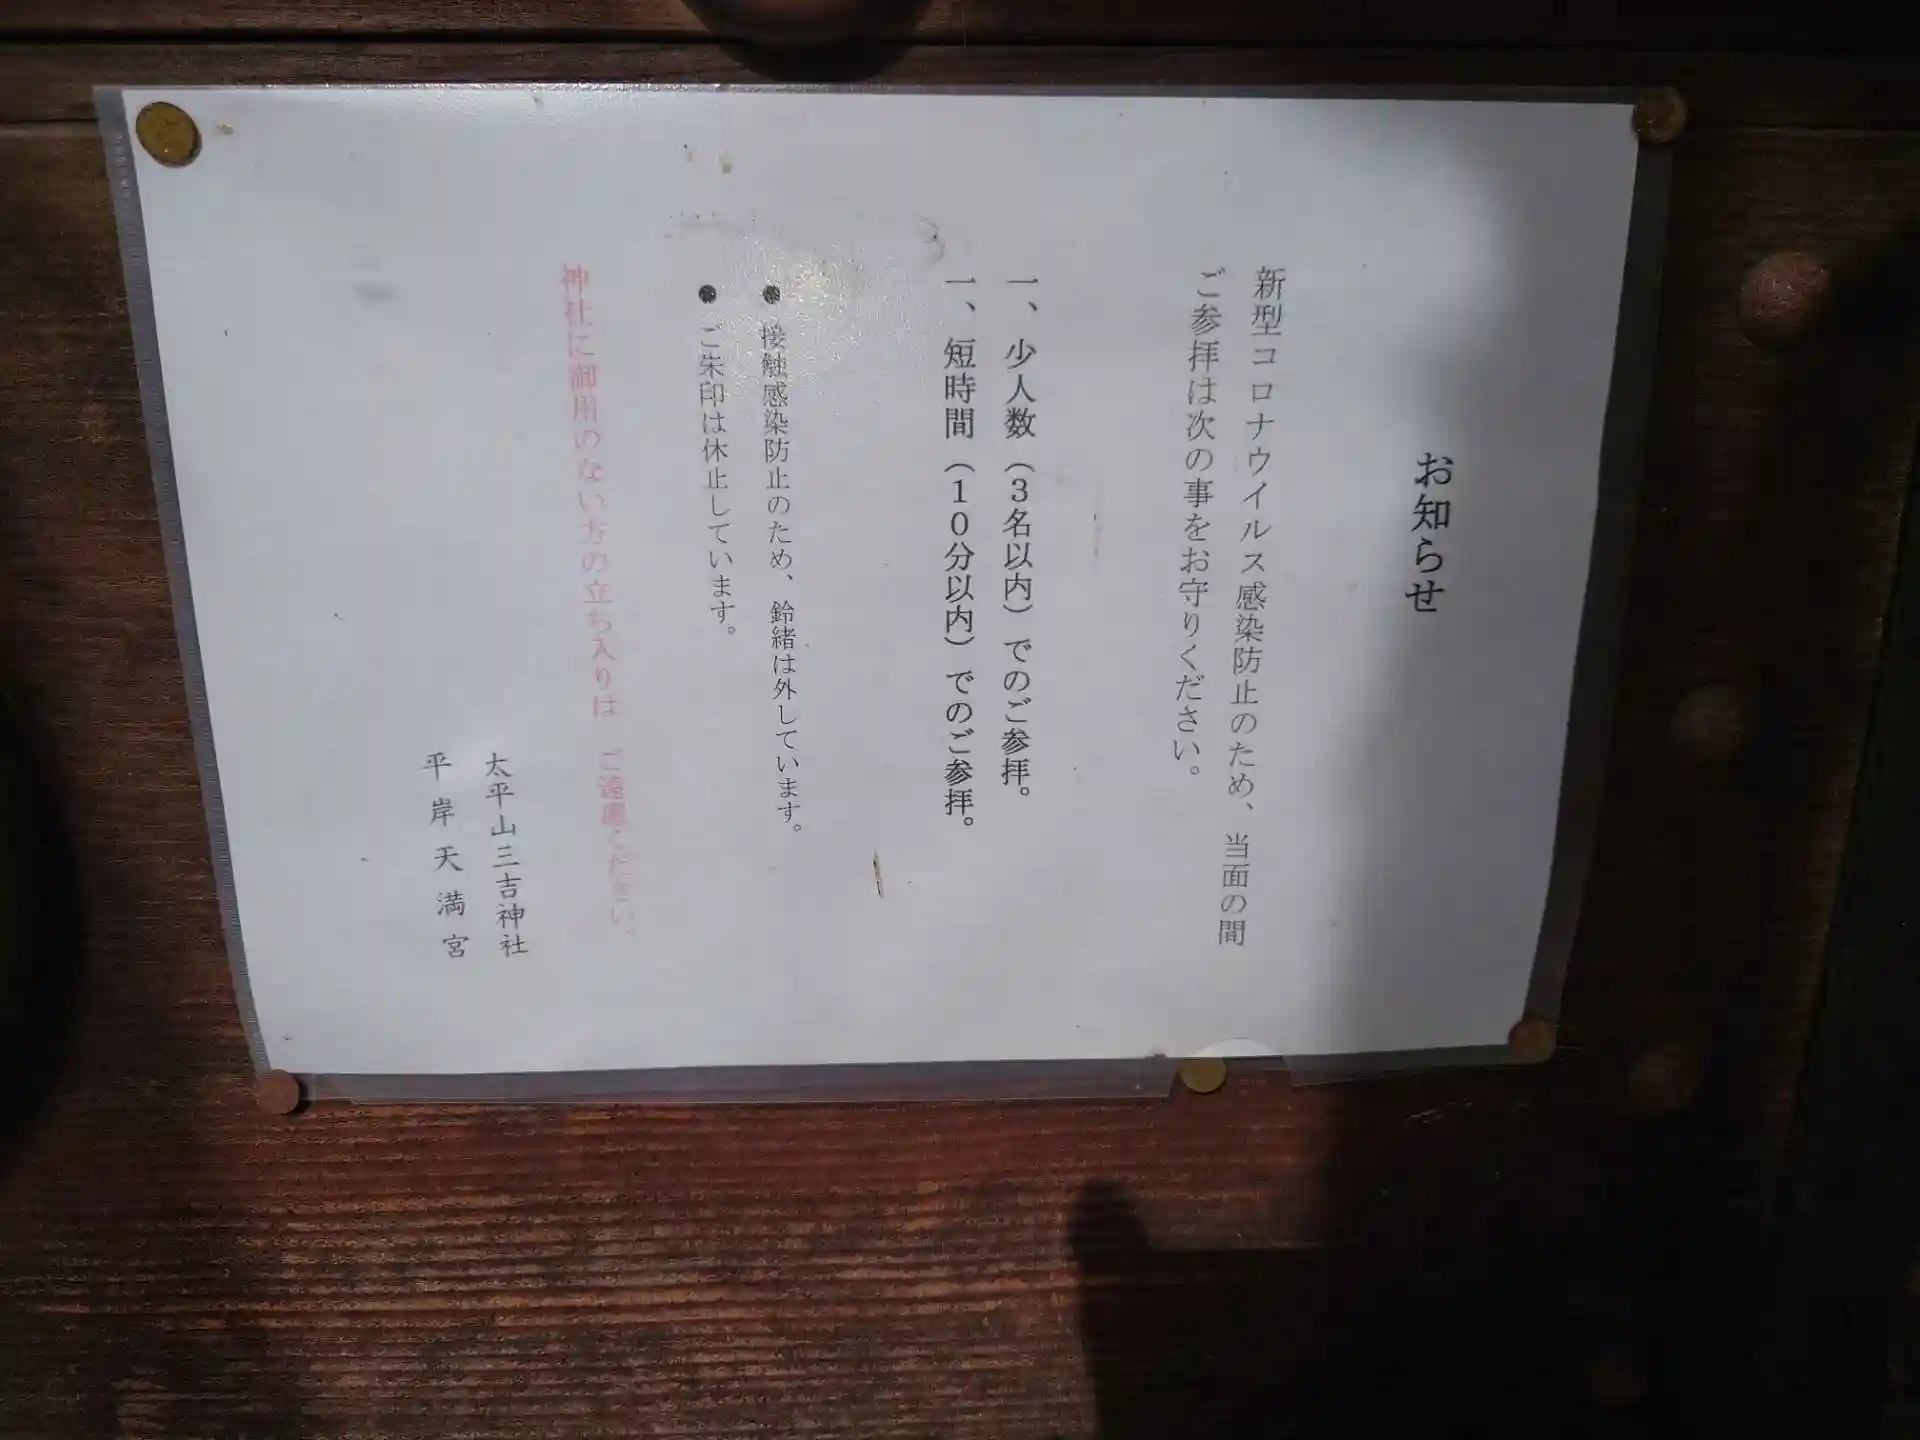 お知らせ
新型コロナウイルス感染防止のため、当面の間
ご参拝は次の事をお守りください。
一、少人数(3名以内)でのご参拝。
一、短時間(10分以内)でのご参拝。
● 接触感染防止のため、鈴緒は外しています。
● ご朱印は休止しています。
神社に御用のない方の立ち入りは ご遠慮ください。
太平山三吉神社
平岸天満宮